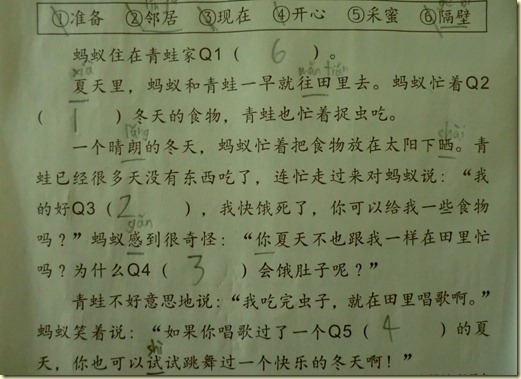 ①准备 ②邻居 ③现在 ④开心 ⑤采蜜 ⑥隔壁
蚂蚁住在青蛙家Q1（ 6 ）。
xià
夏天里，蚂蚁和青蛙一早就往田里去。蚂蚁忙着Q2
wǎn tián
（ 1 ）冬天的食物，青蛙也忙着捉虫吃。
lǎng
一个晴朗的冬天，蚂蚁忙着把食物放在太阳下晒。青
shài
蛙已经很多天没有东西吃了，连忙走过来对蚂蚁说：“我
的好Q3（ 2 ），我快饿死了，你可以给我一些食物
gǎn
吗？”蚂蚁感到很奇怪：“你夏天不也跟我一样在田里忙
吗？为什么Q4（ 3 ）会饿肚子呢？”
青蛙不好意思地说：“我吃完虫子，就在田里唱歌啊。”
蚂蚁笑着说：“如果你唱歌过了一个Q5（ 4 ）的夏
shì
天，你也可以试试跳舞过一个快乐的冬天啊！”